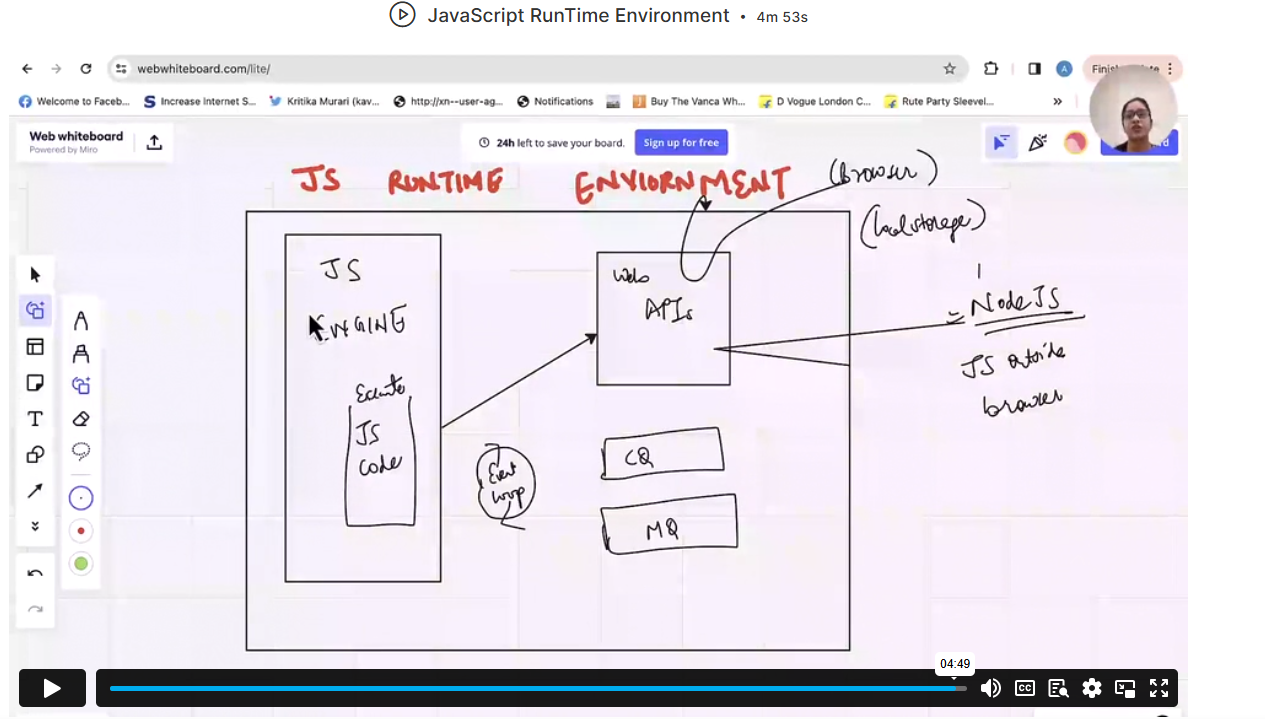 JavaScript RunTime Environment • 4m 53s
webwhiteboard.com/lite/
Welcome to Faceb...
Increase Internet S...
Kritika Murari (kav...
http://xn--user-ag...
Notifications
Buy The Vanca Wh...
D Vogue London C...
Rute Party Sleevel...
»
Web whiteboard
Powered by Miro
24h left to save your board.
Sign up for free
JS RUNTIME ENVIORNMENT
(browser)
(localstorage)
JS
ENGINE
Execute
JS
code
Web
APIs
Event
loop
CQ
MQ
NodeJS
JS outside
browser
04:49
CC